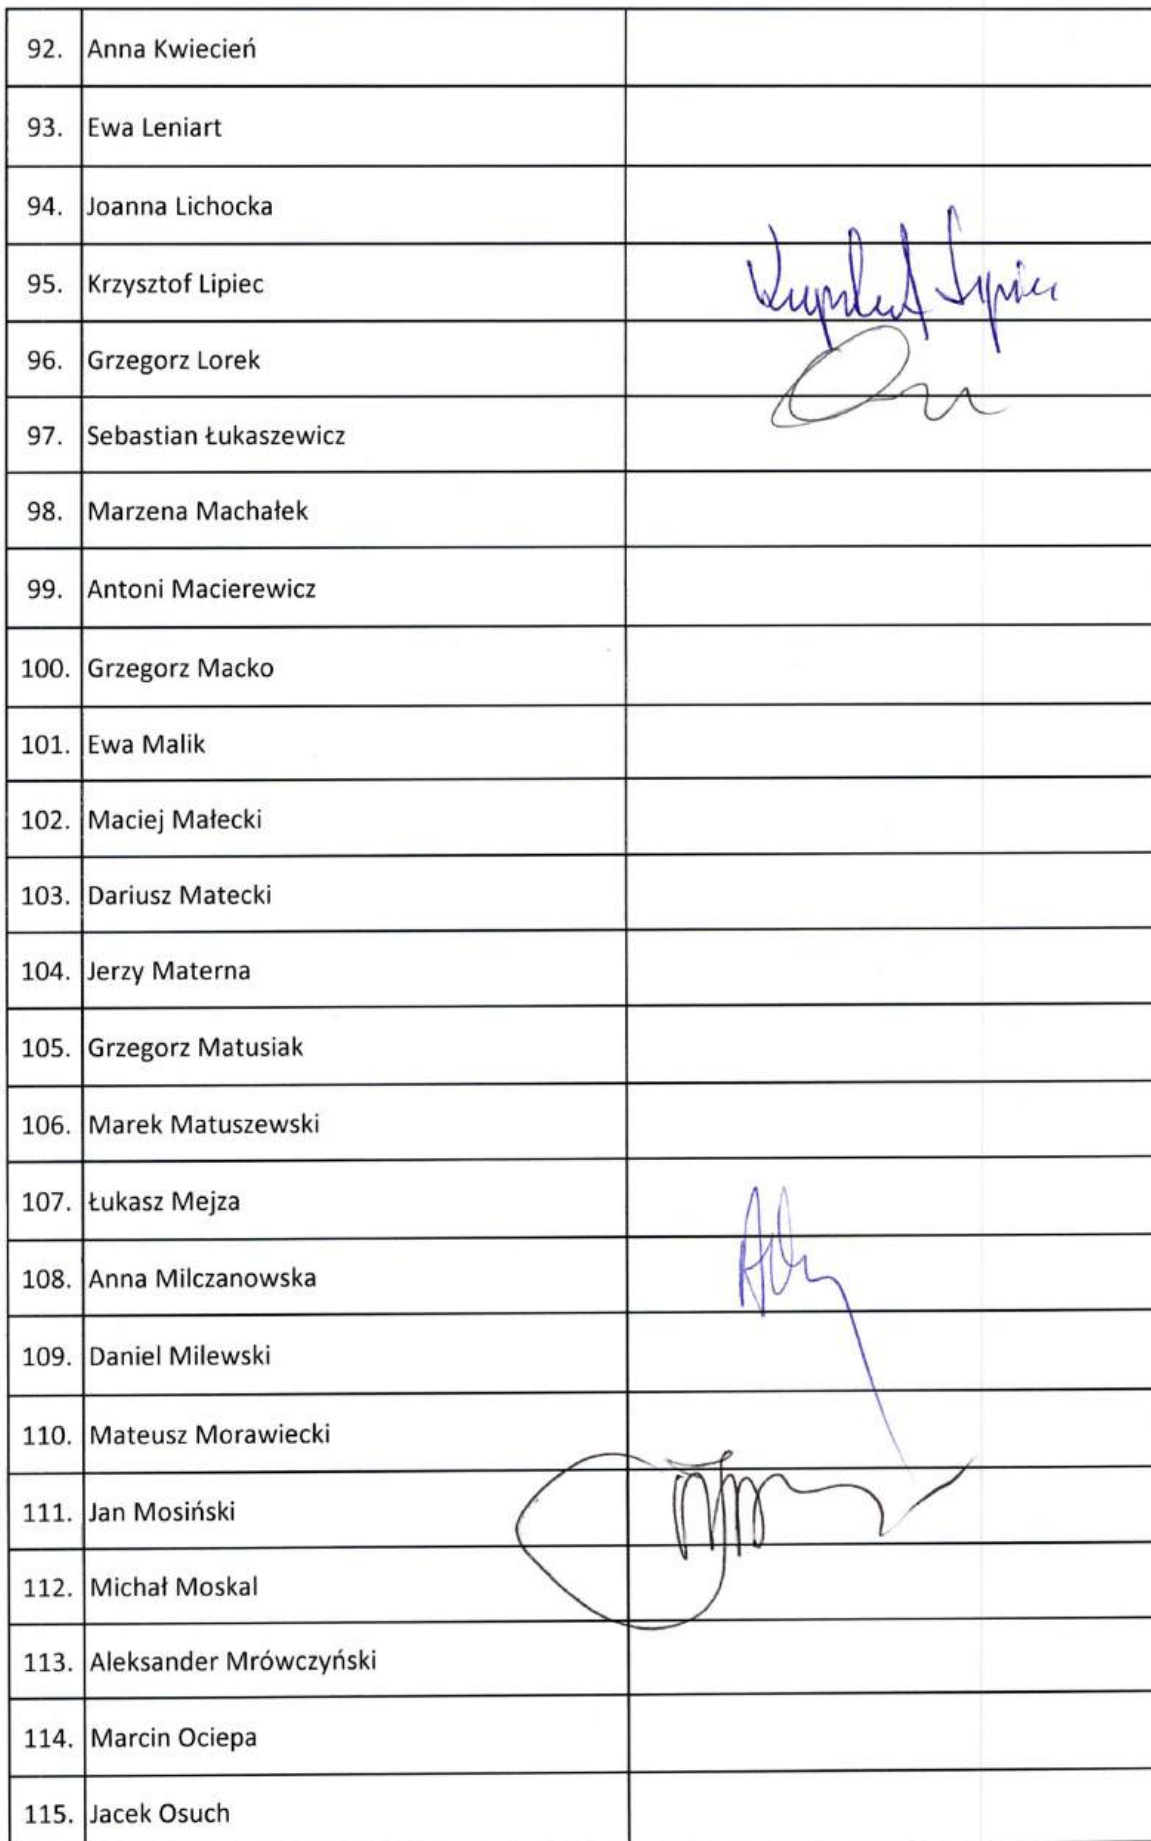 92. Anna Kwiecień
93. Ewa Leniart
94. Joanna Lichocka
95. Krzysztof Lipiec Krzysztof Lipiec
96. Grzegorz Lorek
97. Sebastian Łukaszewicz
98. Marzena Machałek
99. Antoni Macierewicz
100. Grzegorz Macko
101. Ewa Malik
102. Maciej Małecki
103. Dariusz Matecki
104. Jerzy Materna
105. Grzegorz Matusiak
106. Marek Matuszewski
107. Łukasz Mejza
108. Anna Milczanowska
109. Daniel Milewski
110. Mateusz Morawiecki
111. Jan Mosiński
112. Michał Moskal
113. Aleksander Mrówczyński
114. Marcin Ociepa
115. Jacek Osuch